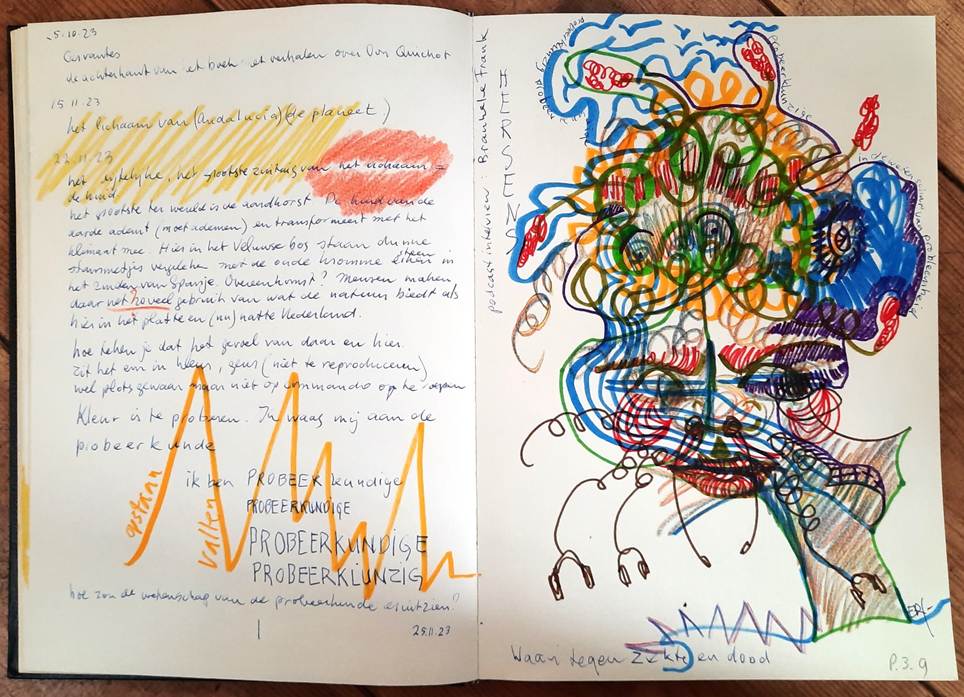 25.10.23
Cervantes
de achterkant van het boek het verhalen over Don Quichot
15.11.23
het lichaam van (Andalucia) (de planeet)
22.11.23
het grootste zintuig van het lichaam =
de huid
het grootste ter wereld is de aardkorst De huid van de
aarde ademt (moet ademen) en transformeert met het
klimaat mee. Hier in het Veluwse bos staan dunne
stammetjes vergeleken met de oude kromme eiken in
het zuiden van Spanje. Overeenkomst? Mensen maken
daar net zoveel gebruik van wat de natuur biedt als
hier in het platte en (nu) natte Nederland.
hoe teken je dat het gevoel van daar en hier.
Zit het em in kleur, geur (niet te reproduceren)
wel plots gewaar maar niet op commando op te roepen
Kleur is te proberen. Ik waag mij aan de
probeerkunde
ik ben PROBEERkundige
PROBEERKUNDIGE
PROBEERKUNDIGE
PROBEERKUNZIG
opstaan
vallen
hoe zou de wetenschap van de probeerkunde eruitzien?
1
25.11.23
podcast interview: Brankele Frank
HERSENS
probeerkunzige
Waan tegen ziekte en dood
P.3.9